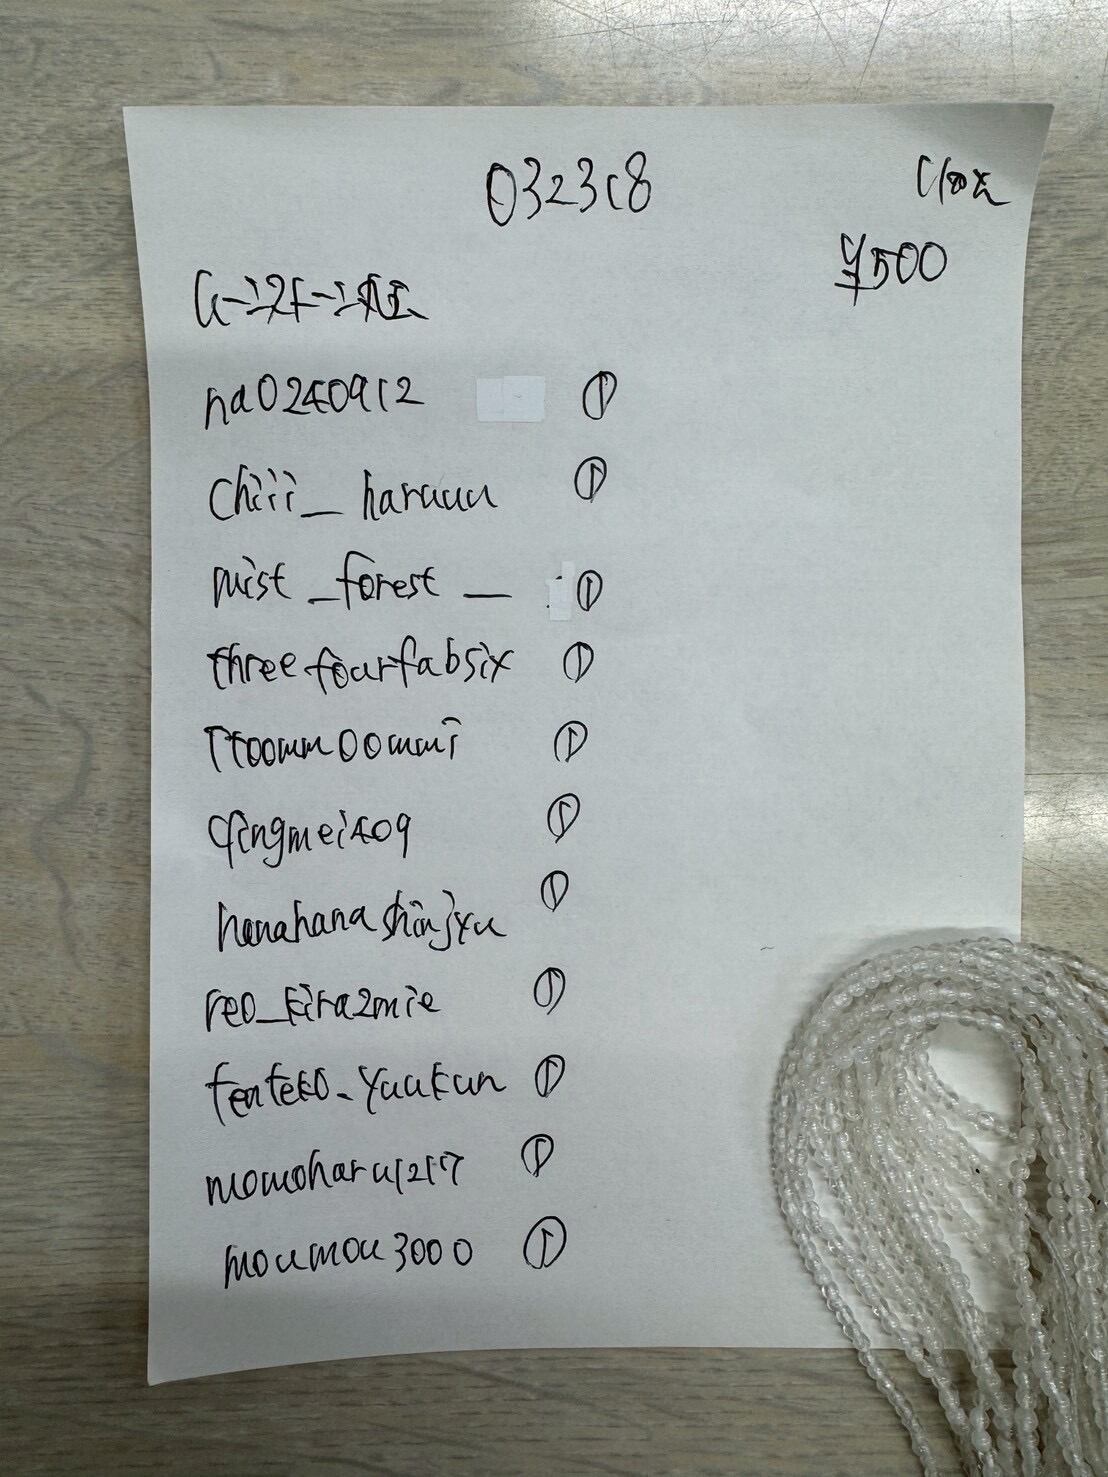 032318
¥500
na0240912 ①
chiii_haruuu ①
mist_forest__ ①
threefourfabsix ①
ttoomm00mmi ①
qingmei409 ①
hanahanashinjyu ①
reo_kirazmie ①
tenteko_yuukun ①
momoharu1217 ①
moumou3000 ①